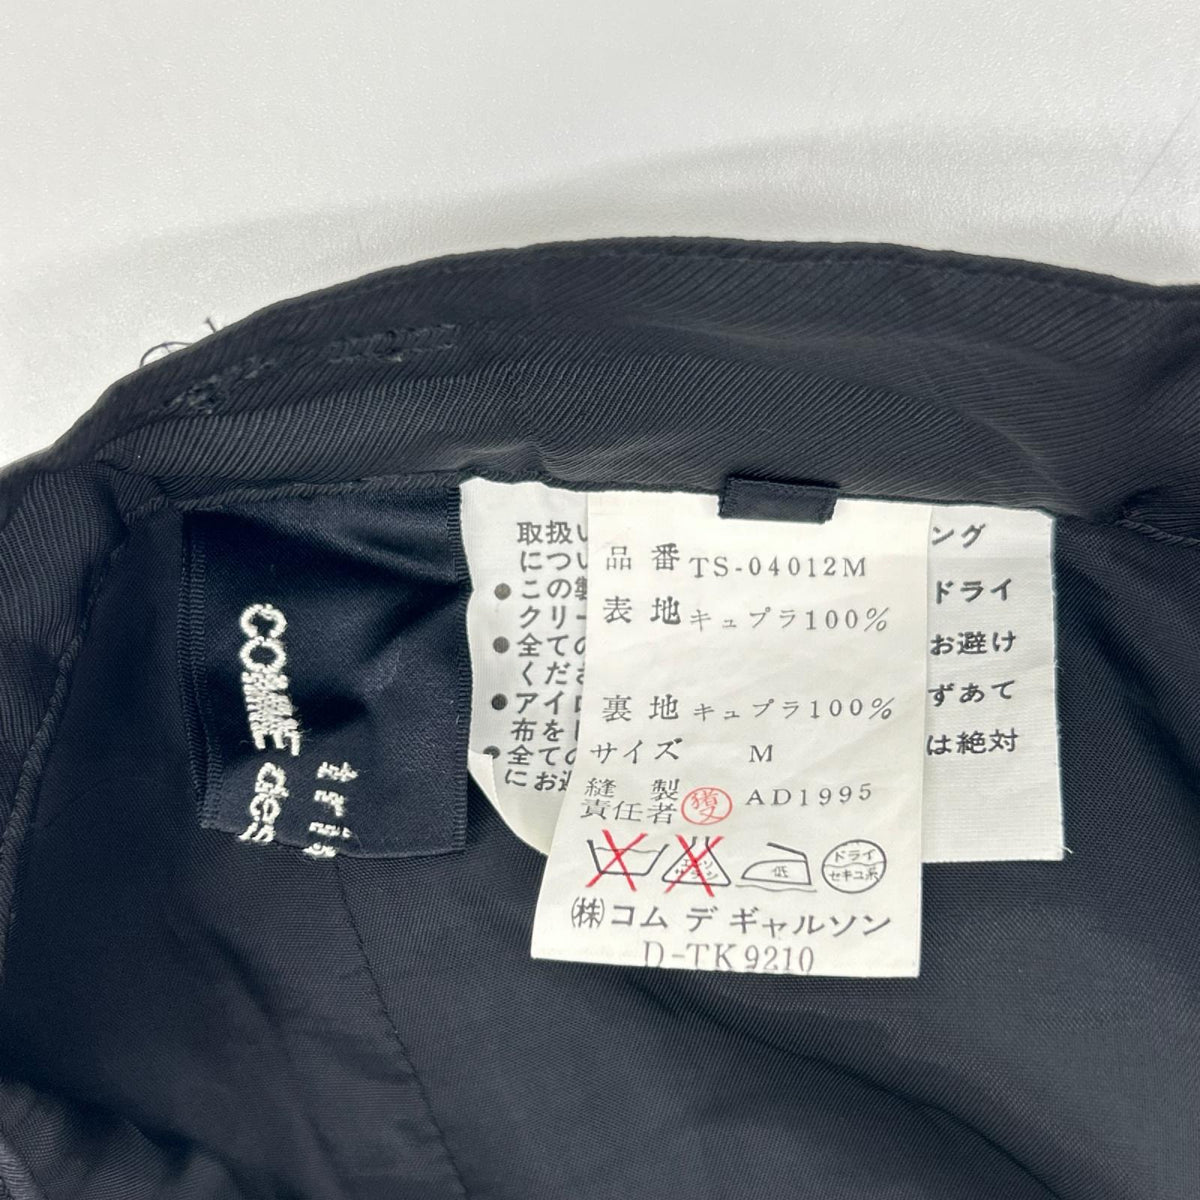 COMME des
tri
取扱い
につい
●この製
クリー
●全ての
くださ
●アイロ
布をし
●全ての
にお避
ング
ドライ
お避け
ずあて
は絶対
品 番 TS-04012M
表 地 キュプラ100%
裏 地 キュプラ100%
サイズ M
縫 製
責任者 AD1995
低
ドライ
セキユ系
(株)コム デ ギャルソン
D-TK9210